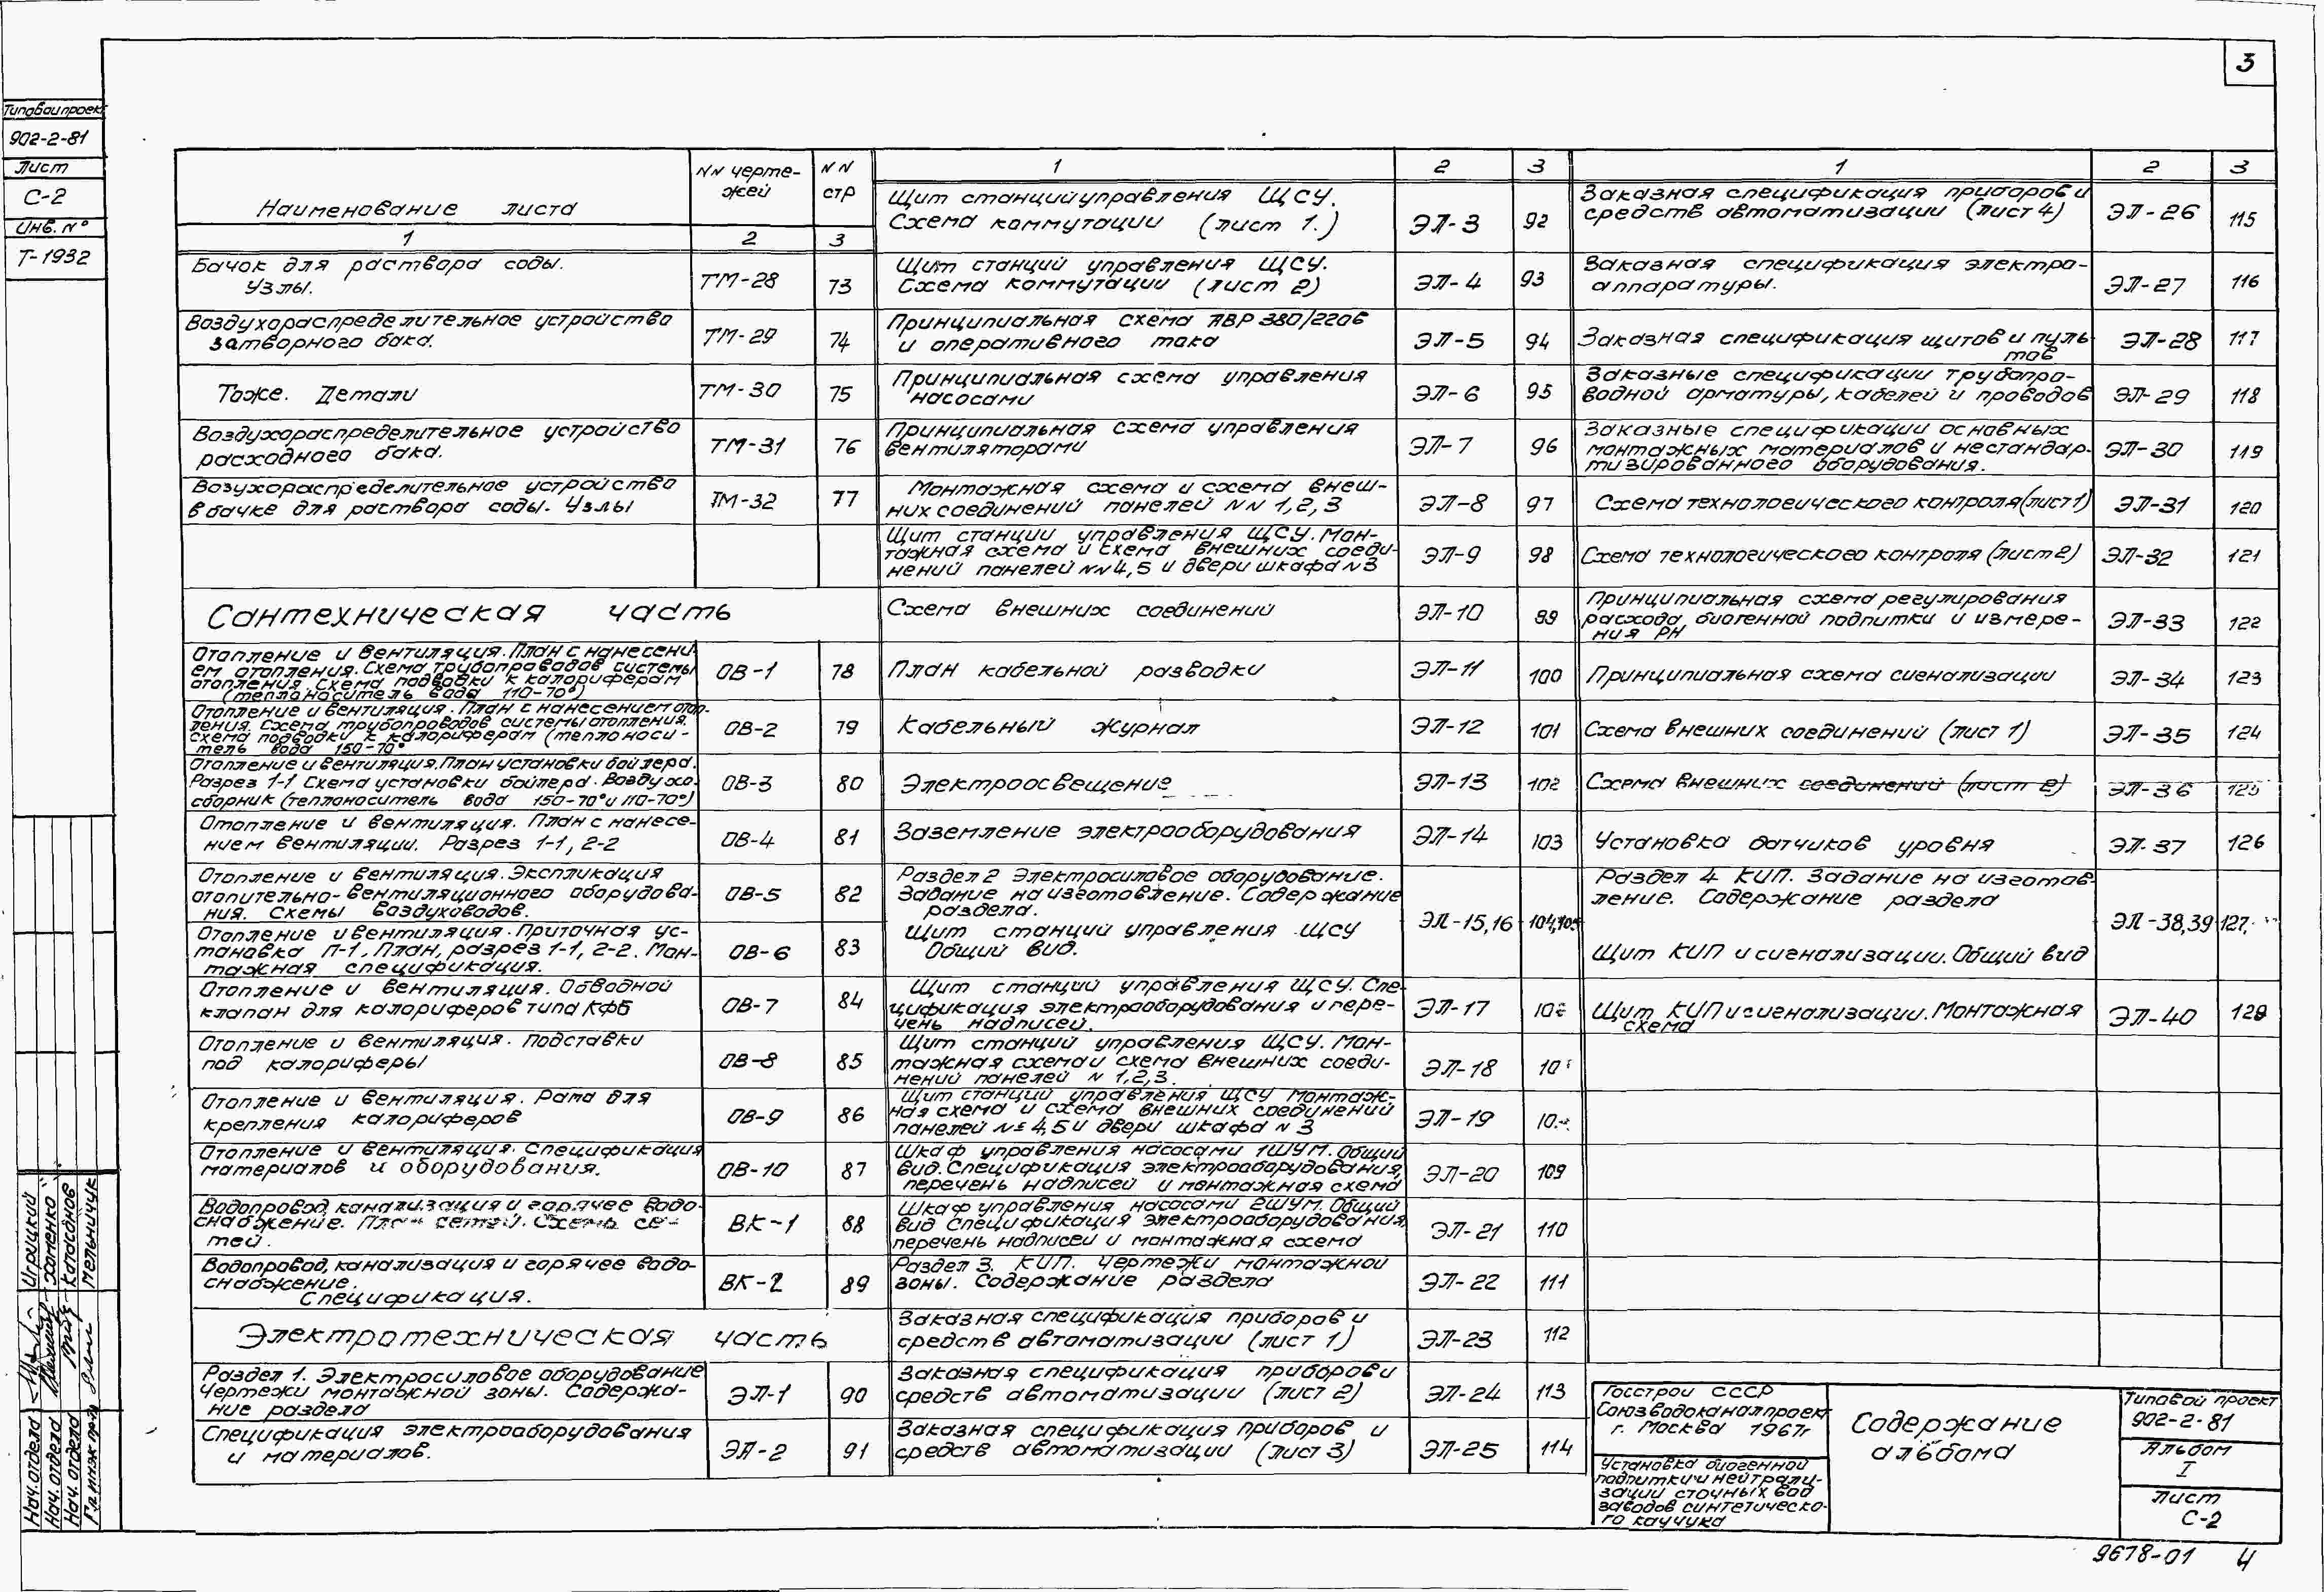 3
Типовой проект
902-2-81
Лист
С-2
Инв. N°
Т-1932
Наименование листа
NN черте-
жей
NN
стр
1
2
3
Бачок для раствора соды.
Узлы.
ТМ-28
73
Воздухораспределительное устройство
затворного бака.
ТМ-29
74
Тоже. Детали
ТМ-30
75
Воздухораспределительное устройство
расходного бака.
ТМ-31
76
Возухораспределительное устройство
в бачке для раствора соды. Узлы
ТМ-32
77
Сантехническая часть
Отопление и вентиляция. План с нанесени-
ем отопления. Схема трубопроводов системы
отопления. Схема подводки к калориферам
(теплоноситель вода 110-70°)
ОВ-1
78
Отопление и вентиляция. План с нанесением отоп-
ления. Схема трубопроводов системы отопления.
Схема подводки к калориферам (теплоноси-
тель вода 150-70°
ОВ-2
79
Отопление и вентиляция. План установки бойлера.
Разрез 1-1 Схема установки бойлера. Воздухо-
сборник (теплоноситель вода 150-70° и 110-70°)
ОВ-3
80
Отопление и вентиляция. План с нанесе-
нием вентиляции. Разрез 1-1, 2-2
ОВ-4
81
Отопление и вентиляция. Экспликация
отопительно-вентиляционного оборудова-
ния. Схемы воздуховодов.
ОВ-5
82
Отопление и вентиляция. Приточная ус-
тановка П-1. План, разрез 1-1, 2-2. Мон-
тажная спецификация.
ОВ-6
83
Отопление и вентиляция. Обводной
клапан для калориферов типа КФБ
ОВ-7
84
Отопление и вентиляция. Подставки
под калориферы
ОВ-8
85
Отопление и вентиляция. Рама для
крепления калориферов
ОВ-9
86
Отопление и вентиляция. Спецификация
материалов и оборудования.
ОВ-10
87
Водопровод, канализация и горячее водо-
снабжение. План сетей. Схемы се-
тей.
ВК-1
88
Водопровод, канализация и горячее водо-
снабжение.
Спецификация.
ВК-2
89
Электротехническая часть
Раздел 1. Электросиловое оборудование
Чертежи монтажной зоны. Содержа-
ние раздела
ЭЛ-1
90
Спецификация электрооборудования
и материалов.
ЭЛ-2
91
1
2
3
Щит станций управления ЩСУ.
Схема коммутации (лист 1.)
ЭЛ-3
92
Щит станций управления ЩСУ.
Схема коммутации (лист 2)
ЭЛ-4
93
Принципиальная схема АВР 380/220в
и оперативного тока
ЭЛ-5
94
Принципиальная схема управления
насосами
ЭЛ-6
95
Принципиальная схема управления
вентиляторами
ЭЛ-7
96
Монтажная схема и схема внеш-
них соединений панелей NN 1,2,3
ЭЛ-8
97
Щит станции управления ЩСУ. Мон-
тажная схема и схема внешних соеди-
нений панелей NN 4,5 и двери шкафа N3
ЭЛ-9
98
Схема внешних соединений
ЭЛ-10
99
План кабельной разводки
ЭЛ-11
100
Кабельный журнал
ЭЛ-12
101
Электроосвещение
ЭЛ-13
102
Заземление электрооборудования
ЭЛ-14
103
Раздел 2 Электросиловое оборудование.
Задание на изготовление. Содержание
раздела.
Щит станций управления ЩСУ
Общий вид.
ЭЛ-15,16
104,105
Щит станций управления ЩСУ. Спе-
цификация электрооборудования и пере-
чень надписей.
ЭЛ-17
Щит станций управления ЩСУ. Мон-
тажная схема и схема внешних соеди-
нений панелей N 1,2,3.
ЭЛ-18
Щит станций управления ЩСУ Монтаж-
ная схема и схема внешних соединений
панелей N= 4,5 и двери шкафа N 3
ЭЛ-19
Шкаф управления насосами 1ШУМ. Общий
вид. Спецификация электрооборудования,
перечень надписей и монтажная схема
ЭЛ-20
109
Шкаф управления насосами 2ШУМ. Общий
вид Спецификация электрооборудования,
перечень надписей и монтажная схема
ЭЛ-21
110
Раздел 3. КИП. Чертежи монтажной
зоны. Содержание раздела
ЭЛ-22
111
Заказная спецификация приборов и
средств автоматизации (лист 1)
ЭЛ-23
112
Заказная спецификация приборов и
средств автоматизации (лист 2)
ЭЛ-24
113
Заказная спецификация приборов и
средств автоматизации (лист 3)
ЭЛ-25
114
1
2
3
Заказная спецификация приборов и
средств автоматизации (лист 4)
ЭЛ-26
115
Заказная спецификация электро-
аппаратуры.
ЭЛ-27
116
Заказная спецификация щитов и пуль-
тов
ЭЛ-28
117
Заказные спецификации трубопро-
водной арматуры, кабелей и проводов
ЭЛ-29
118
Заказные спецификации основных
монтажных материалов и нестандар-
тизированного оборудования.
ЭЛ-30
119
Схема технологического контроля (лист 1)
ЭЛ-31
120
Схема технологического контроля (лист 2)
ЭЛ-32
121
Принципиальная схема регулирования
расхода биогенной подпитки и измере-
ния РН
ЭЛ-33
122
Принципиальная схема сигнализации
ЭЛ-34
123
Схема внешних соединений (лист 1)
ЭЛ-35
124
Схема внешних соединений (лист 2)
ЭЛ-36
125
Установка датчиков уровня
ЭЛ-37
126
Раздел 4 КИП. Задание на изготов-
ление. Содержание раздела
Щит КИП и сигнализации. Общий вид
ЭЛ-38,39
127,
Щит КИП и сигнализации. Монтажная
схема
ЭЛ-40
129
Госстрой СССР
Союзводоканалпроект
г. Москва 1967г
Установка биогенной
подпитки и нейтрали-
зации сточных вод
заводов синтетическо-
го каучука
Содержание
альбома
Типовой проект
902-2-81
Альбом
I
Лист
С-2
9678-01 4
Нач. отдела
Игрицкий
Нач. отдела
Хоменко
Нач. отдела
Катасонов
Гл инж пр-та
Мельничук